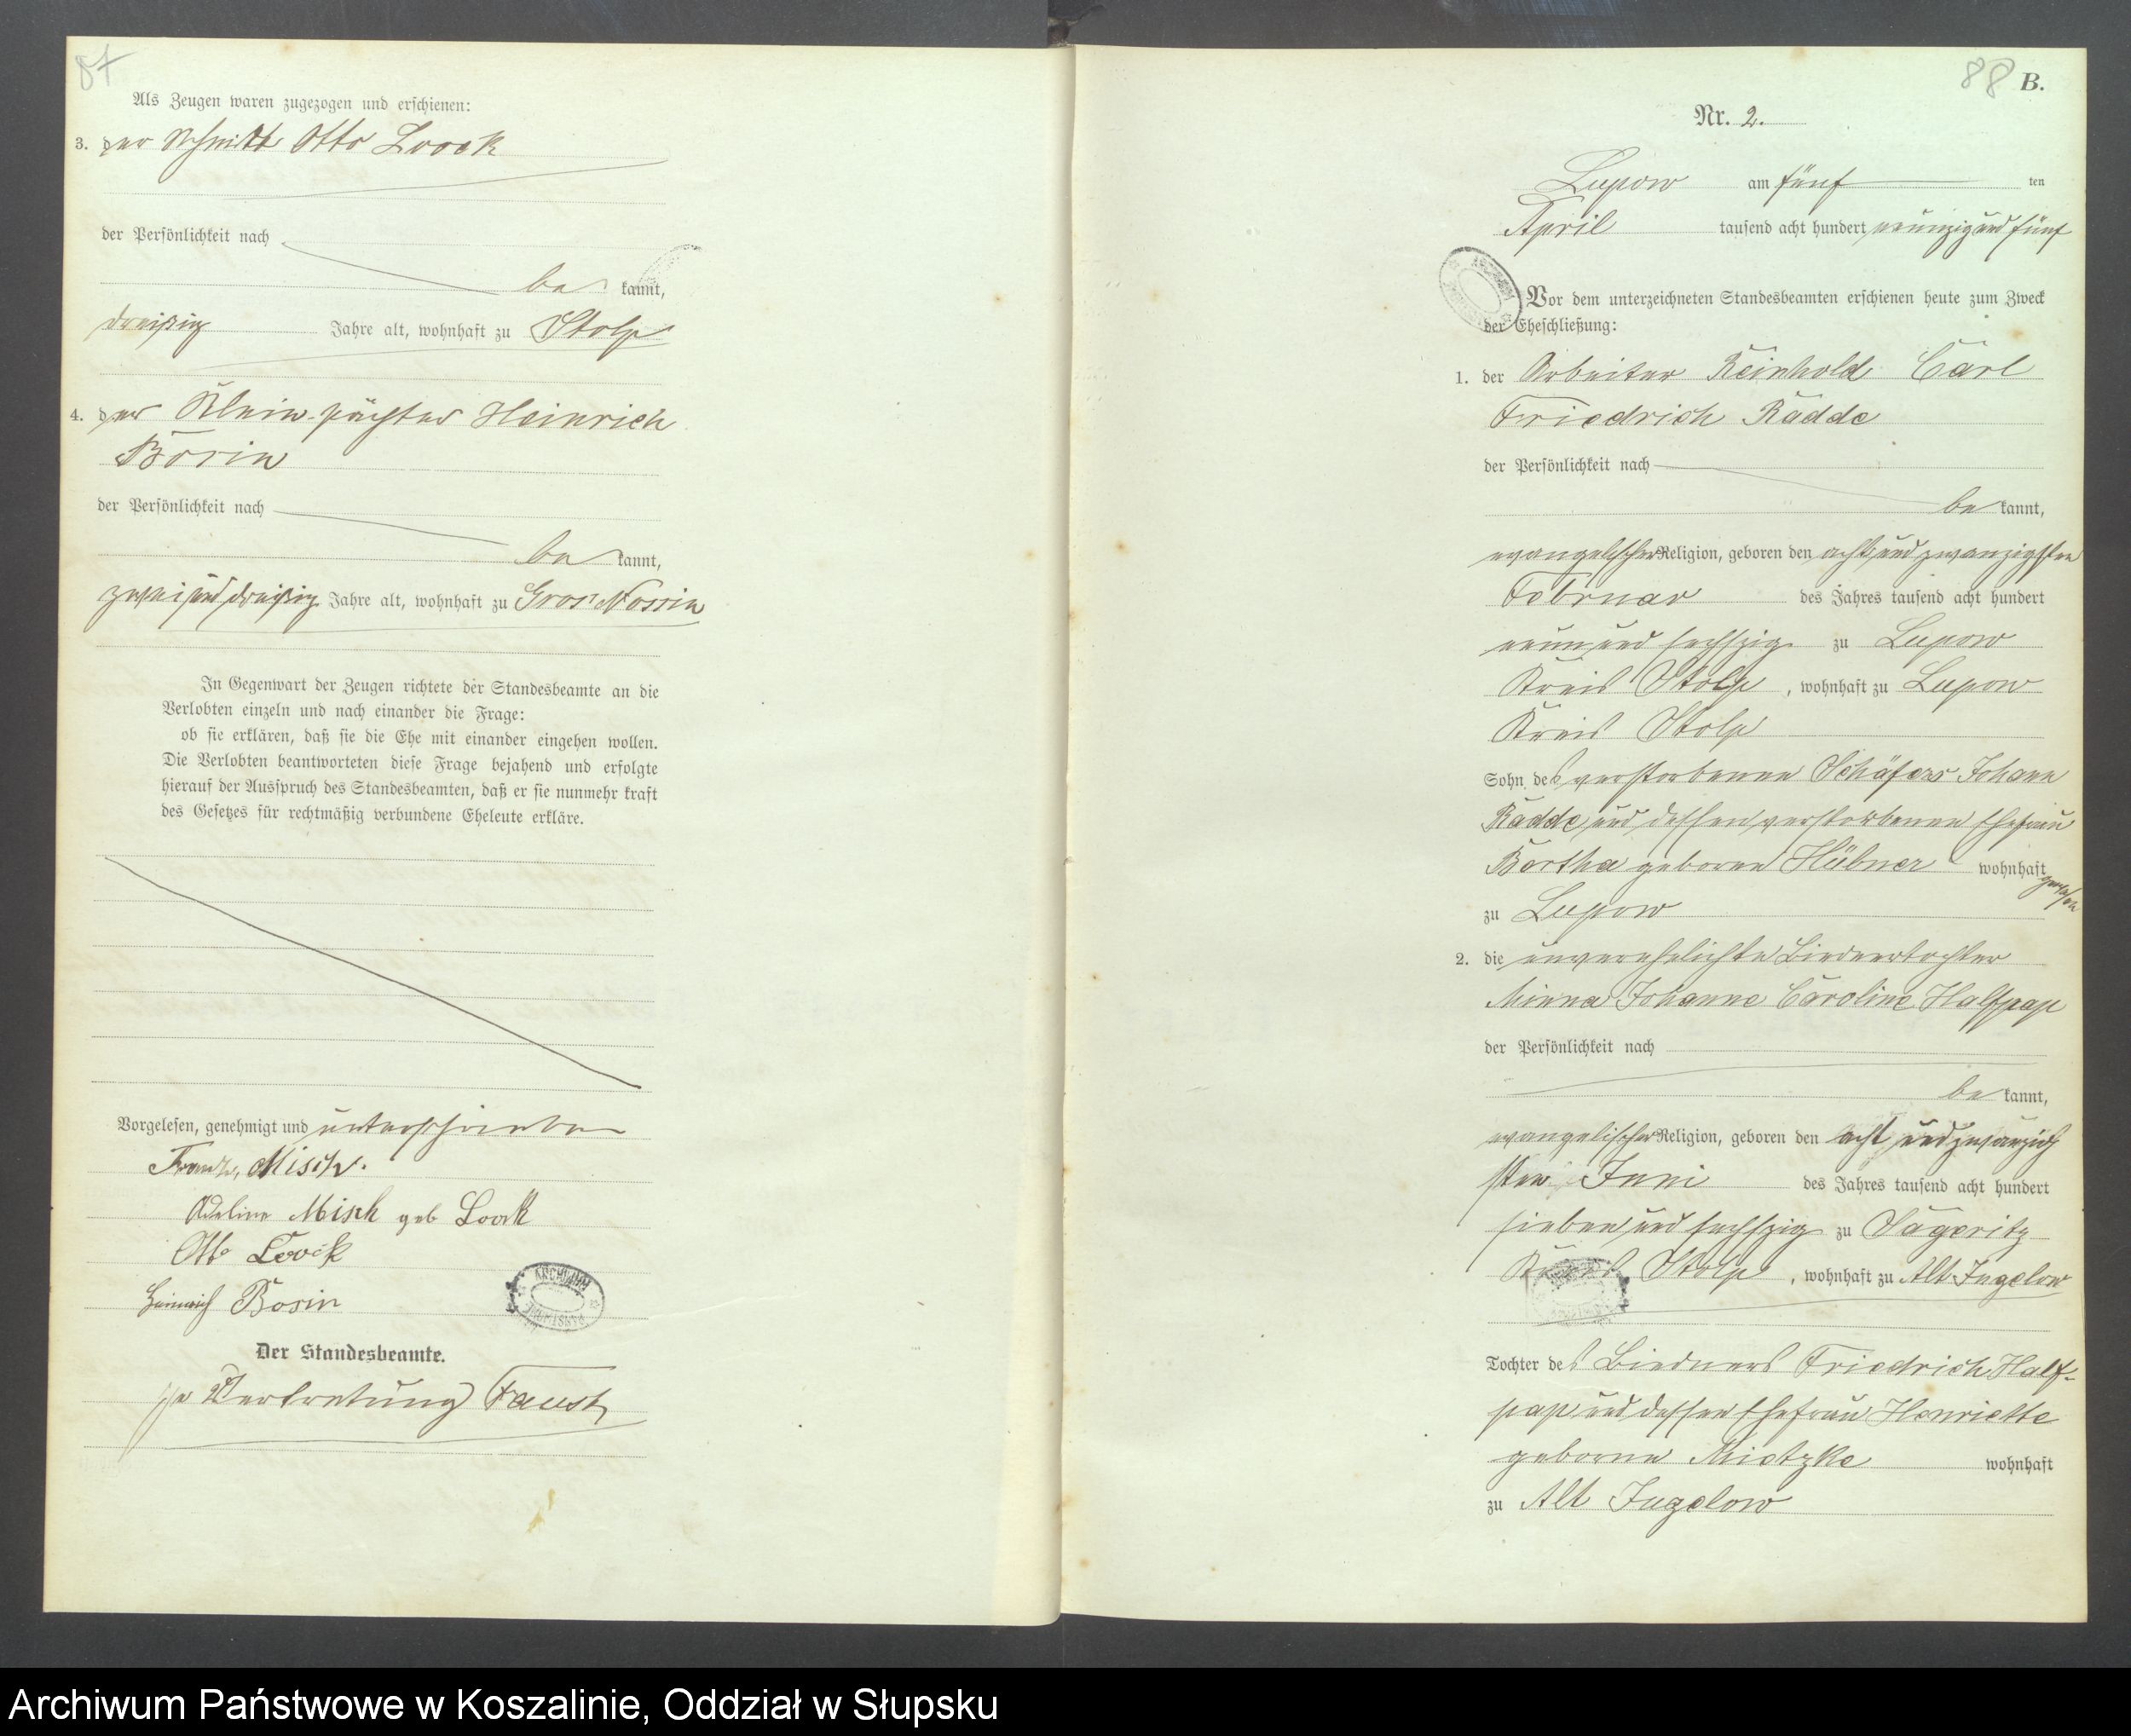 87
Als Zeugen waren zugezogen und erschienen:
3. der Schmidt Otto Loock
der Persönlichkeit nach
be kannt,
dreißig Jahre alt, wohnhaft zu Stolp
4. der Kleinpächter Heinrich
Bosin
der Persönlichkeit nach
be kannt,
zweiunddreißig Jahre alt, wohnhaft zu Gross Nossin
In Gegenwart der Zeugen richtete der Standesbeamte an die
Verlobten einzeln und nach einander die Frage:
ob sie erklären, daß sie die Ehe mit einander eingehen wollen.
Die Verlobten beantworteten diese Frage bejahend und erfolgte
hierauf der Ausspruch des Standesbeamten, daß er sie nunmehr kraft
des Gesetzes für rechtmäßig verbundene Eheleute erkläre.
Vorgelesen, genehmigt und unterschrieben
Franz Misch.
Adeline Misch geb Loock
Otto Loock
Heinrich Bosin
ARCHIWUM
Der Standesbeamte.
In Vertretung Faust
88 B.
Nr. 2.
Lupow am fünf ten
April tausend acht hundert neunzig und fünf
ARCHIWUM
Vor dem unterzeichneten Standesbeamten erschienen heute zum Zweck
der Eheschließung:
1. der Arbeiter Reinhold Carl
Friedrich Radde
der Persönlichkeit nach
be kannt,
evangelischer Religion, geboren den acht und zwanzigsten
Februar des Jahres tausend acht hundert
neun und sechszig zu Lupow
Kreis Stolp, wohnhaft zu Lupow
Kreis Stolp
Sohn des verstorbenen Schäfers Johann
Radde und dessen verstorbenen Ehefrau
Bertha geborene Hübner wohnhaft gewesen
zu Lupow
2. die unverehelichte Büdnertochter
Minna Johanne Caroline Halfpap
der Persönlichkeit nach
be kannt,
evangelischer Religion, geboren den acht und zwanzig
sten Juni des Jahres tausend acht hundert
sieben und sechszig zu Sageritz
Kreis Stolp, wohnhaft zu Alt Jugelow
Tochter des Büdners Friedrich Half-
pap und dessen Ehefrau Henriette
geborene Mietzke wohnhaft
zu Alt Jugelow
Archiwum Państwowe w Koszalinie, Oddział w Słupsku